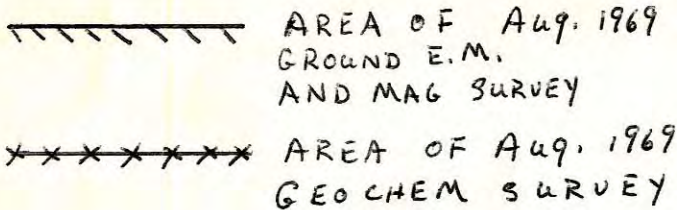 AREA OF Aug. 1969
GROUND E.M.
AND MAG SURVEY
AREA OF Aug. 1969
GEOCHEM SURVEY